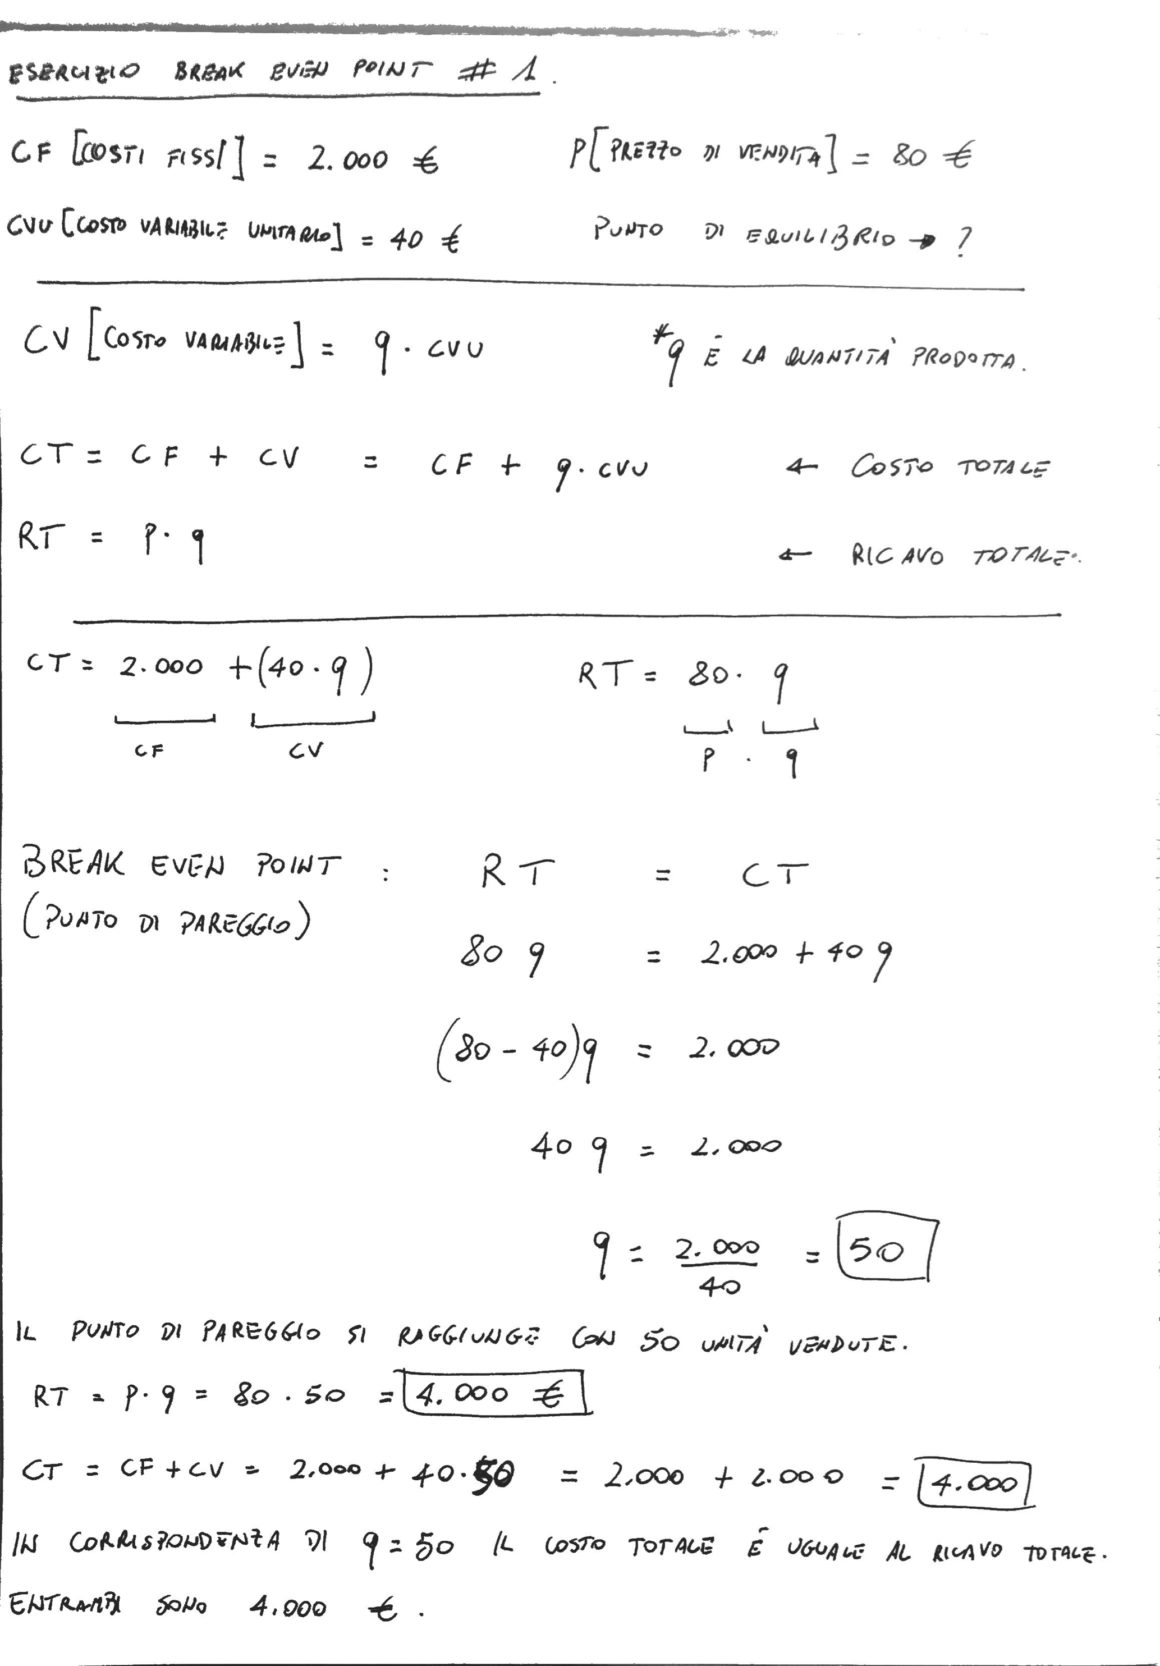 ESERCIZIO BREAK EVEN POINT # 1.
CF [COSTI FISSI] = 2.000 € P [PREZZO DI VENDITA] = 80 €
CVU [COSTO VARIABILE UNITARIO] = 40 € PUNTO DI EQUILIBRIO → ?
CV [COSTO VARIABILE] = q · CVU *q È LA QUANTITÀ PRODOTTA.
CT = CF + CV = CF + q · CVU ← COSTO TOTALE
RT = P · q ← RICAVO TOTALE.
CT = 2.000 + (40 · q) RT = 80 · q
CF CV P · q
BREAK EVEN POINT : RT = CT
(PUNTO DI PAREGGIO)
80 q = 2.000 + 40 q
(80 - 40)q = 2.000
40 q = 2.000
q = 2.000 / 40 = 50
IL PUNTO DI PAREGGIO SI RAGGIUNGE CON 50 UNITÀ VENDUTE.
RT = P · q = 80 · 50 = 4.000 €
CT = CF + CV = 2.000 + 40 · 50 = 2.000 + 2.000 = 4.000
IN CORRISPONDENZA DI q = 50 IL COSTO TOTALE È UGUALE AL RICAVO TOTALE.
ENTRAMBI SONO 4.000 €.